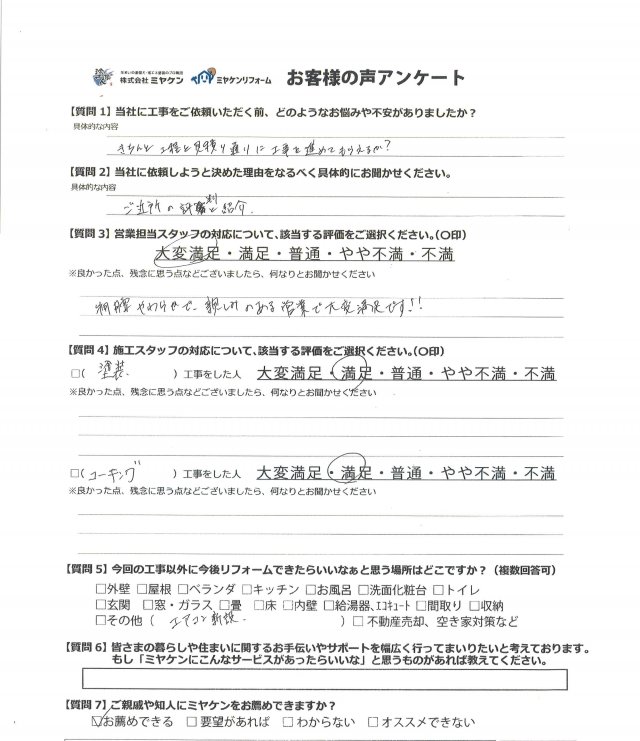 住まいの塗替え・省エネ塗装のプロ集団
株式会社ミヤケン ミヤケンリフォーム お客様の声アンケート
【質問1】当社に工事をご依頼いただく前、どのようなお悩みや不安がありましたか?
具体的な内容
きちんと工程と見積り通りに工事を進めてもらえるか?
【質問2】当社に依頼しようと決めた理由をなるべく具体的にお聞かせください。
具体的な内容
ご近所の評判と紹介.
【質問3】営業担当スタッフの対応について、該当する評価をご選択ください。(○印)
大変満足・満足・普通・やや不満・不満
※良かった点、残念に思う点などございましたら、何なりとお聞かせください
物腰やわらかで、親しみのある営業で大変満足です!!
【質問4】施工スタッフの対応について、該当する評価をご選択ください。(○印)
□( 塗装. )工事をした人 大変満足・満足・普通・やや不満・不満
※良かった点、残念に思う点などございましたら、何なりとお聞かせください
□( コーキング )工事をした人 大変満足・満足・普通・やや不満・不満
※良かった点、残念に思う点などございましたら、何なりとお聞かせください
【質問5】今回の工事以外に今後リフォームできたらいいなぁと思う場所はどこですか?(複数回答可)
□外壁 □屋根 □ベランダ □キッチン □お風呂 □洗面化粧台 □トイレ
□玄関 □窓・ガラス □畳 □床 □内壁 □給湯器、エコキュート □間取り □収納
□その他( エアコン新設. ) □不動産売却、空き家対策など
【質問6】皆さまの暮らしや住まいに関するお手伝いやサポートを幅広く行ってまいりたいと考えております。
もし「ミヤケンにこんなサービスがあったらいいな」と思うものがあれば教えてください。
【質問7】ご親戚や知人にミヤケンをお薦めできますか?
☑お薦めできる □要望があれば □わからない □オススメできない